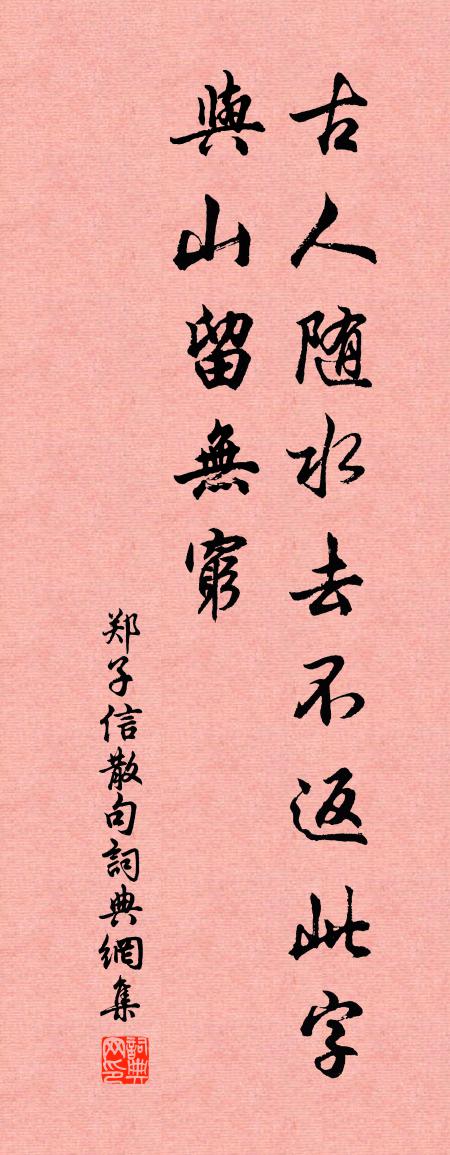 古人随水去不返此字
與山留無窮
郑子信散句詞典網集
詞典网印